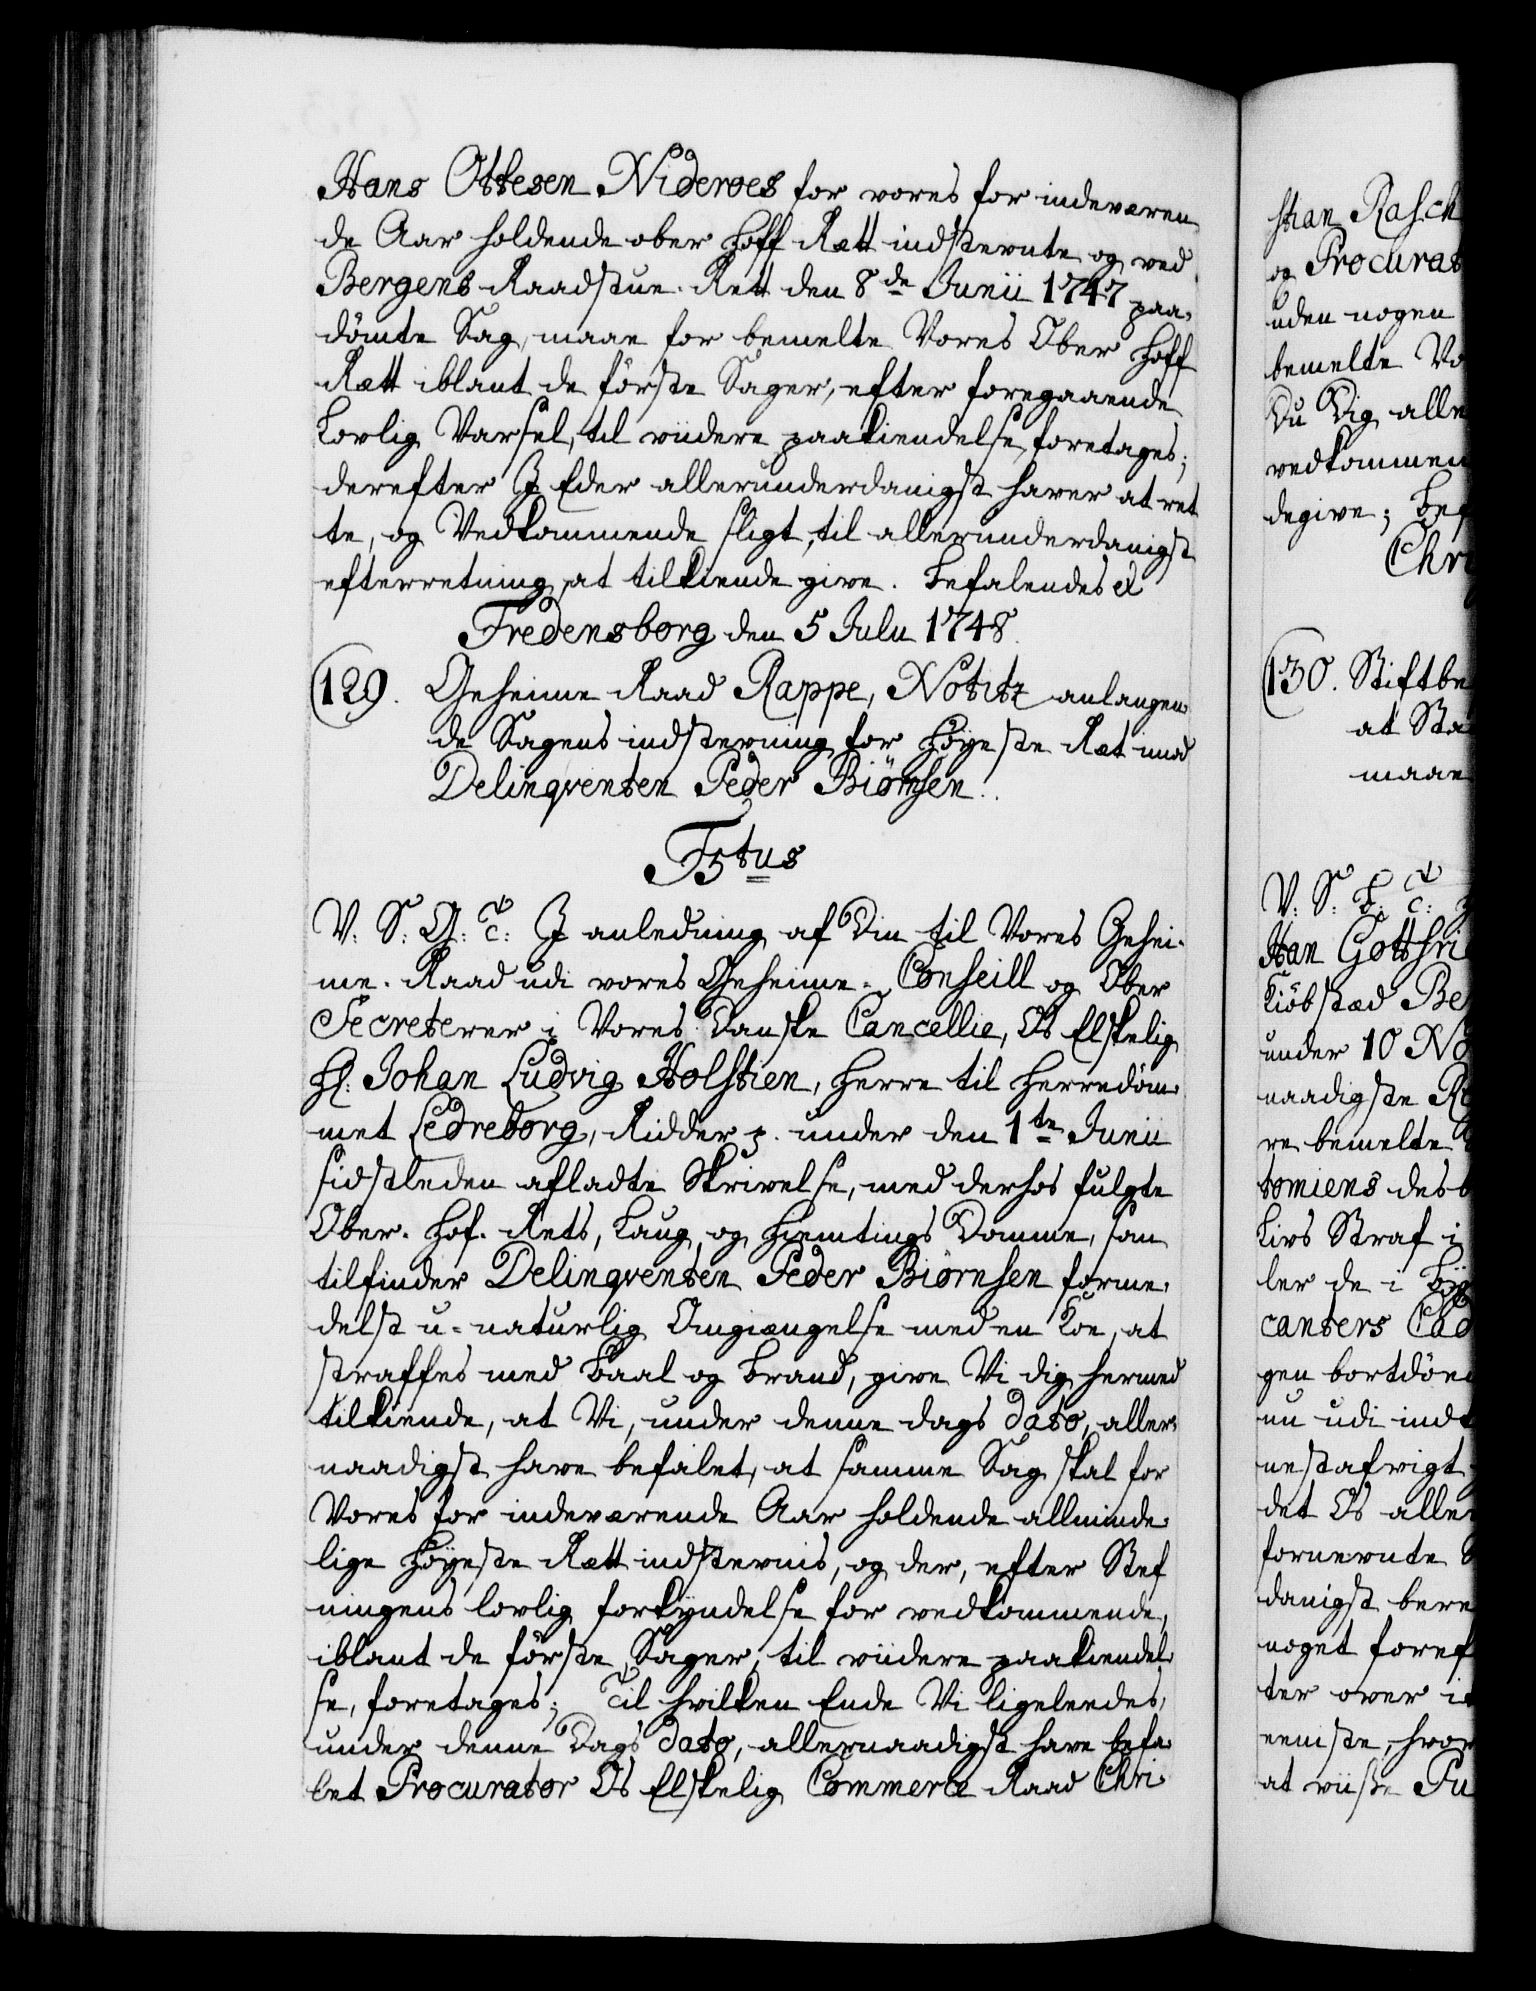 Hans Ottesen Nideroes for vores for indeværen
de Aar holdende ober Hoff Rætt indstevnte og ved
Bergens Raadstue-Rett den 8de Junii 1747 paa-
dömte Sag, maae for bemelte Vores Ober Hoff
Rætt iblant de förste Sager, efter foregaaende
Lovlig Varsel, til viidere paakiendelse, foretages;
derefter I Eder allerunderdanigst haver at ret
te, og Vedkommende sligt, til allerunderdanigst
efterretning, at tilkiende give. Befalendes &
Fredensborg den 5 Julii 1748.
129. Geheime Raad Rappe, Notitz anlangen
de Sagens indstevning for Höyeste Ræt imod
Delinqventen Peder Biørnsen.
F5tus
V: S: G: &c: I anledning af Din til Vores Gehei-
me-Raad udi vores Geheime-Conseill og Ober
Secreterer i Vores Danske Cancellie, Os Elskelig
Hr: Johan Ludvig Holstien, Herre til Herredöm-
met Ledreborg, Ridder p. under den 1te Junii
sidstleden afladte Skrivelse, med derhos fulgte
Ober-Hof-Rets, Laug, og Hiemtings Domme, som
tilfinder Delinqventen Peder Biørnsen forme-
delst u-naturlig Omgiængelse med en Koe, at
straffes med Baal og Brand, give Vi dig hermed
tilkiende, at Vi, under denne dags dato, aller-
naadigst have befalet, at samme Sag skal for
Vores for indeværende Aar holdende allminde-
lige Höyeste Rætt indstevnis, og der, efter Stef
ningens lovlig forkyndelse for vedkommende,
iblant de förste Sager, til viidere paakiendel-
se, foretages; Til hvilken Ende Vi ligeleedes,
under denne Dags dato, allernaadigst have befa-
let Procurator Os Elskelig Commerce Raad Chri
stian Rasch
og Procurat
uden nogen
bemelte Vo
Du Dig alle
vedkommen
degive; Bef
Chri
130. Stiftbe
at Sta
maae
V: S: B: &c:
Han Gottfri
Kiöbstæd Be
under 10 No
naadigste Re
re bemelte
tomiens desb
Livs Straf i
ler de i
canters Cad
gen bortdöe
nu udi inde
nestafvigt
det Os alle
fornevnte S
danigst bere
noget foref
ter over i
eeniste, hvor
at viiste Pu